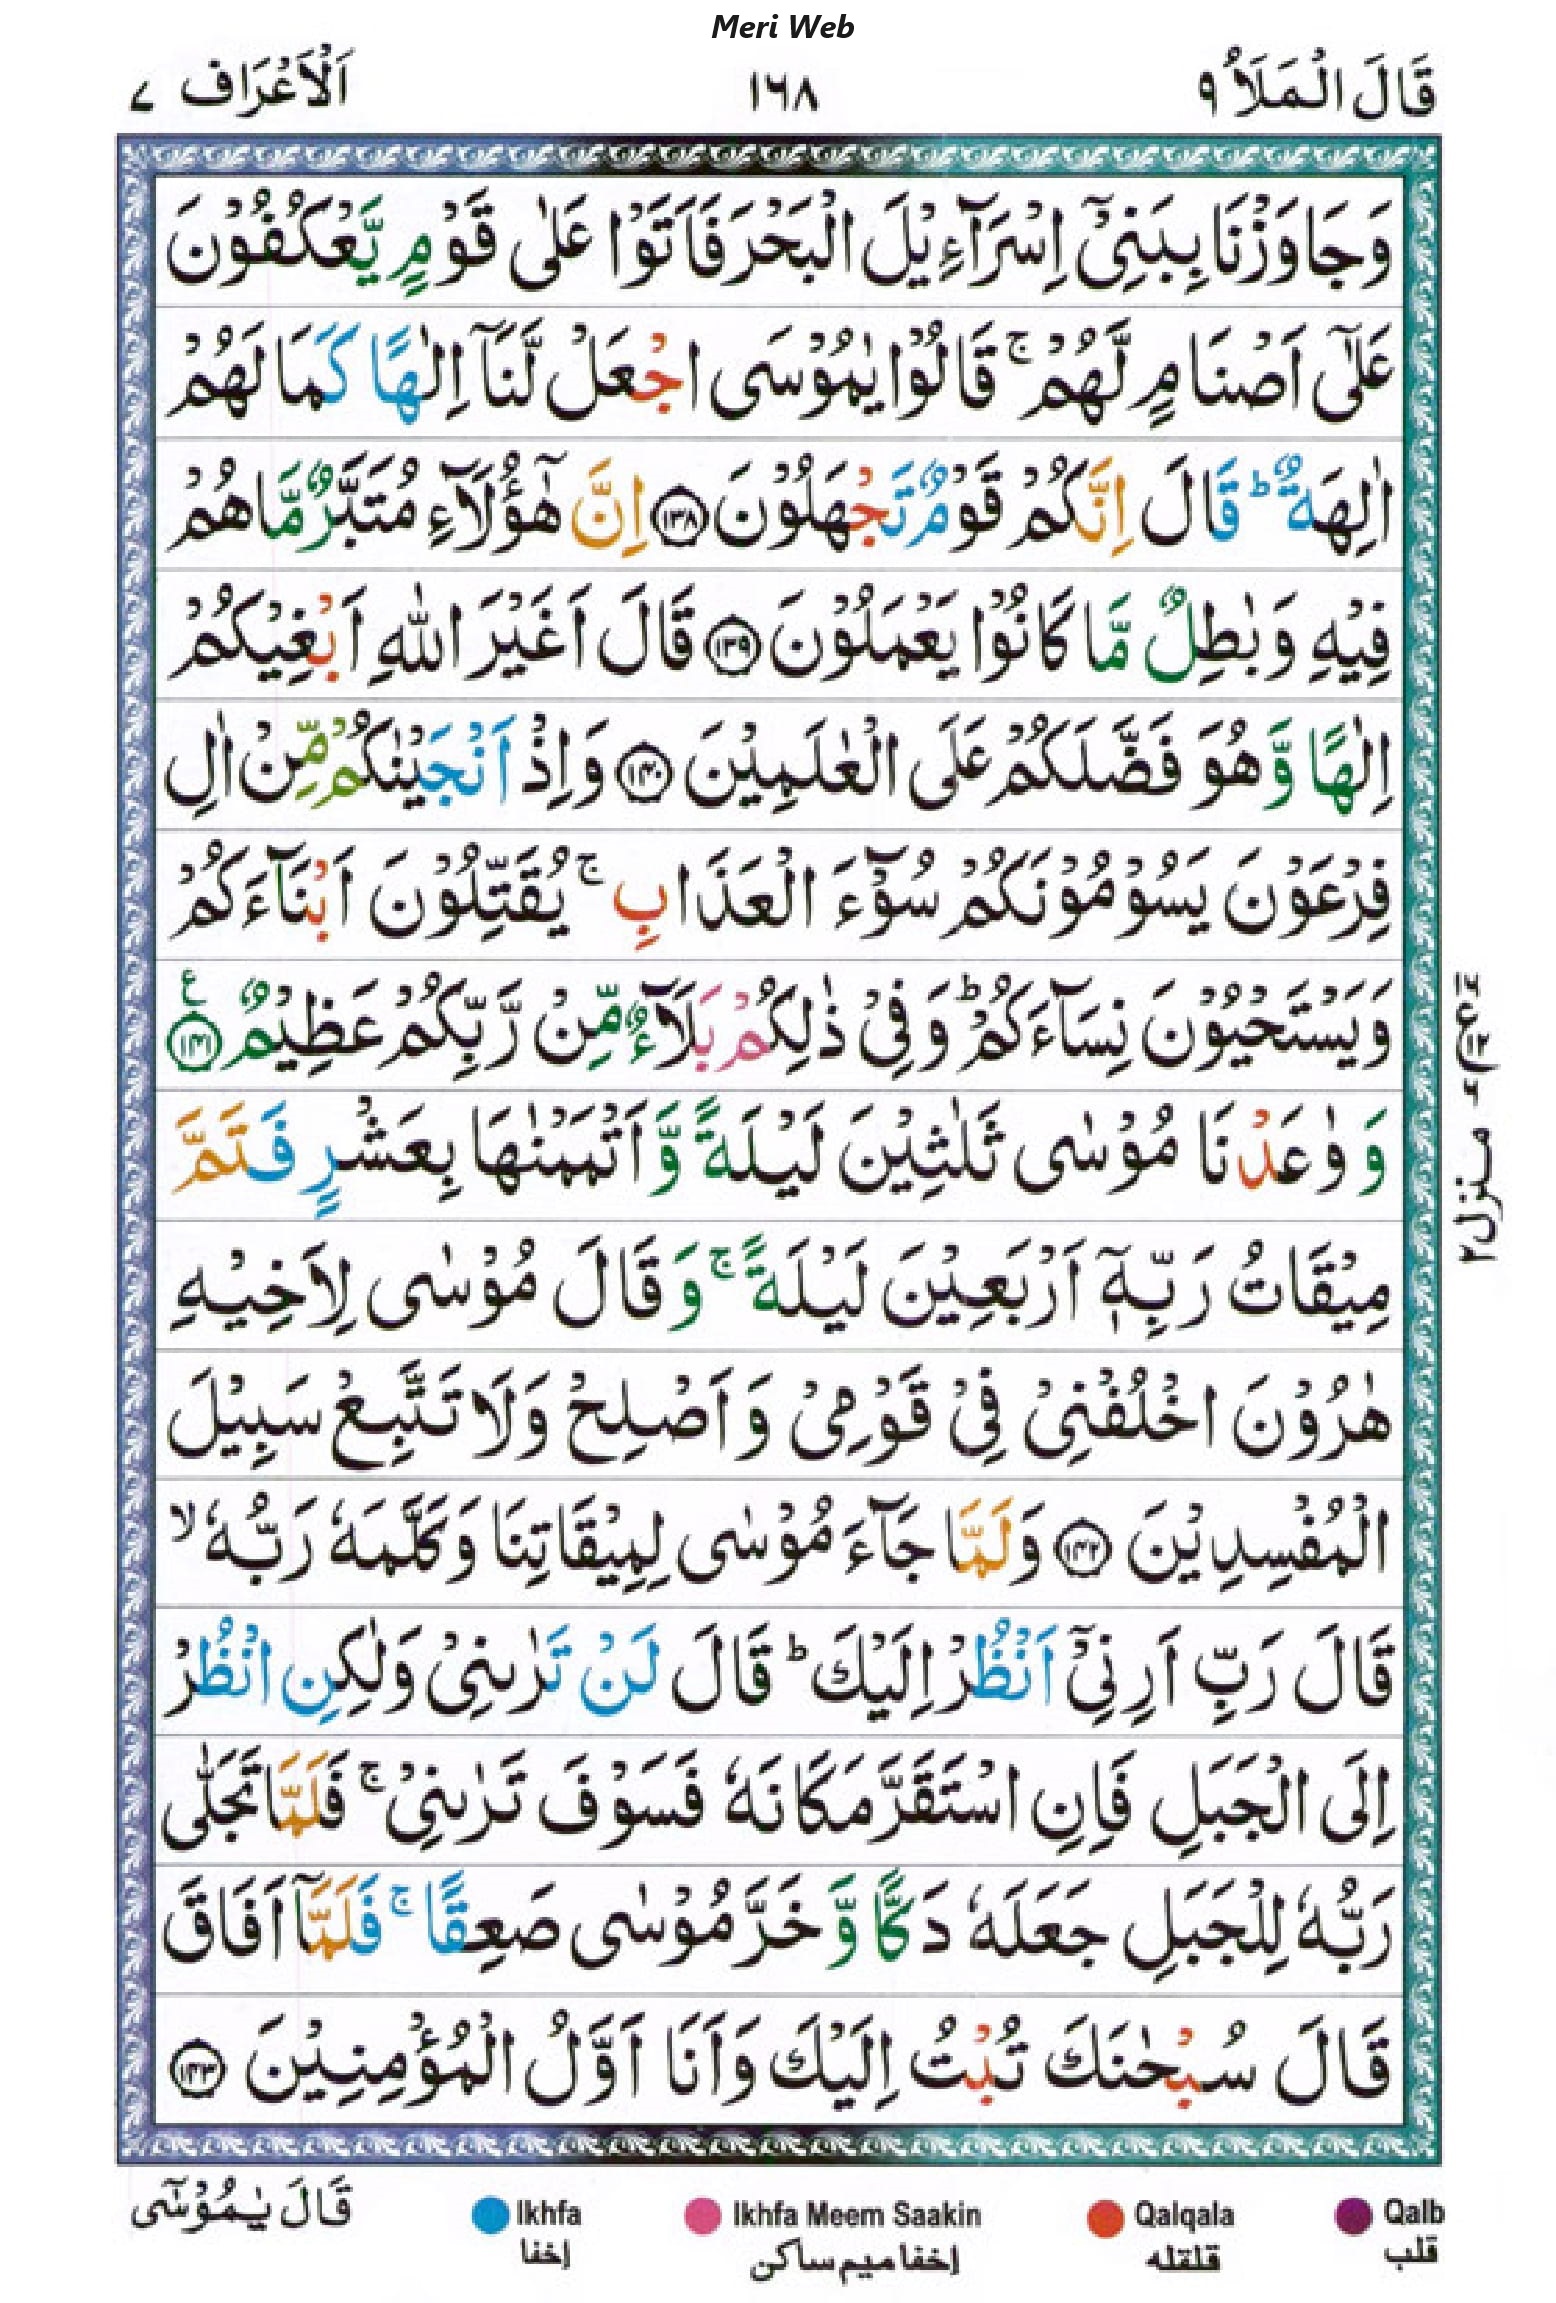 Meri Web
قَالَ الْمَلَاُ ٩
١٦٨
اَلْاَعْرَاف ٧
وَجَاوَزْنَا بِبَنِیْۤ اِسْرَآءِیْلَ الْبَحْرَ فَاَتَوْا عَلٰی قَوْمٍ یَّعْكُفُوْنَ
عَلٰۤی اَصْنَامٍ لَّهُمْ ۚ قَالُوْا یٰمُوْسَی اجْعَلْ لَّنَاۤ اِلٰهًا كَمَا لَهُمْ
اٰلِهَةٌ ؕ قَالَ اِنَّكُمْ قَوْمٌ تَجْهَلُوْنَ ﴿۱۳۸﴾ اِنَّ هٰۤؤُلَآءِ مُتَبَّرٌ مَّا هُمْ
فِیْهِ وَبٰطِلٌ مَّا كَانُوْا یَعْمَلُوْنَ ﴿۱۳۹﴾ قَالَ اَغَیْرَ اللّٰهِ اَبْغِیْكُمْ
اِلٰهًا وَّهُوَ فَضَّلَكُمْ عَلَی الْعٰلَمِیْنَ ﴿۱۴۰﴾ وَاِذْ اَنْجَیْنٰكُمْ مِّنْ اٰلِ
فِرْعَوْنَ یَسُوْمُوْنَكُمْ سُوْٓءَ الْعَذَابِ ۚ یُقَتِّلُوْنَ اَبْنَآءَكُمْ
وَیَسْتَحْیُوْنَ نِسَآءَكُمْ ؕ وَفِیْ ذٰلِكُمْ بَلَآءٌ مِّنْ رَّبِّكُمْ عَظِیْمٌ ﴿۱۴۱﴾ ع
وَوٰعَدْنَا مُوْسٰی ثَلٰثِیْنَ لَیْلَةً وَّاَتْمَمْنٰهَا بِعَشْرٍ فَتَمَّ
مِیْقَاتُ رَبِّهٖۤ اَرْبَعِیْنَ لَیْلَةً ۚ وَقَالَ مُوْسٰی لِاَخِیْهِ
هٰرُوْنَ اخْلُفْنِیْ فِیْ قَوْمِیْ وَاَصْلِحْ وَلَا تَتَّبِعْ سَبِیْلَ
الْمُفْسِدِیْنَ ﴿۱۴۲﴾ وَلَمَّا جَآءَ مُوْسٰی لِمِیْقَاتِنَا وَكَلَّمَهٗ رَبُّهٗ ۙ
قَالَ رَبِّ اَرِنِیْۤ اَنْظُرْ اِلَیْكَ ؕ قَالَ لَنْ تَرٰىنِیْ وَلٰكِنِ انْظُرْ
اِلَی الْجَبَلِ فَاِنِ اسْتَقَرَّ مَكَانَهٗ فَسَوْفَ تَرٰىنِیْ ۚ فَلَمَّا تَجَلّٰی
رَبُّهٗ لِلْجَبَلِ جَعَلَهٗ دَكًّا وَّخَرَّ مُوْسٰی صَعِقًا ۚ فَلَمَّاۤ اَفَاقَ
قَالَ سُبْحٰنَكَ تُبْتُ اِلَیْكَ وَاَنَا اَوَّلُ الْمُؤْمِنِیْنَ ﴿۱۴۳﴾
منزل ٢
قَالَ یٰمُوْسٰۤی
Ikhfa
إخفا
Ikhfa Meem Saakin
إخفا ميم ساكن
Qalqala
قلقله
Qalb
قلب